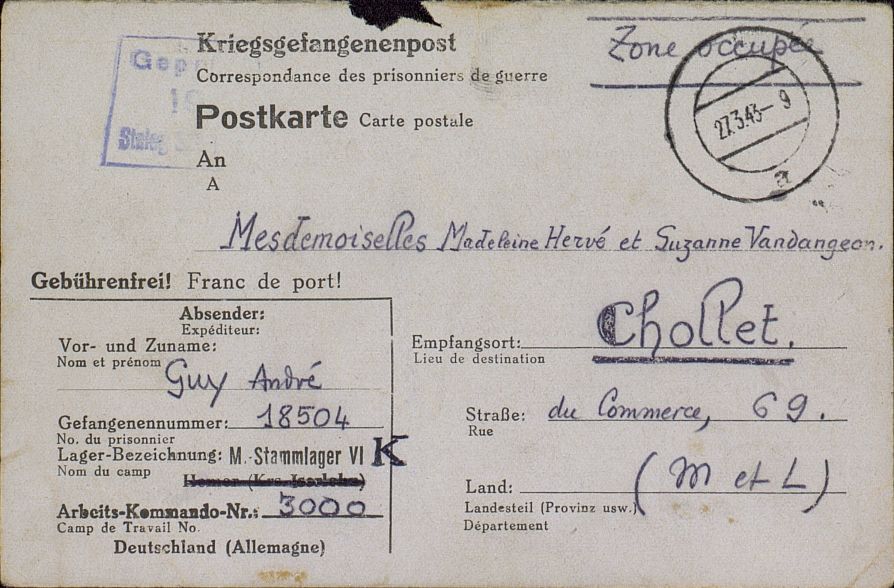 Kriegsgefangenenpost
Correspondance des prisonniers de guerre
Zone occupée
Postkarte Carte postale
27.3.43 – 9
a
Stalag
An
A
Mesdemoiselles Madeleine Hervé et Suzanne Vandangeon.
Gebührenfrei! Franc de port!
Absender:
Expéditeur:
Vor- und Zuname:
Nom et prénom
Guy André
Gefangenennummer: 18504
No. du prisonnier
Lager-Bezeichnung: M.-Stammlager VI K
Nom du camp
Hemer (Krs. Iserlohn)
Arbeits-Kommando-Nr.: 3000
Camp de Travail No.
Deutschland (Allemagne)
Empfangsort: Chollet.
Lieu de destination
Straße: du Commerce, 69.
Rue
Land: (M et L)
Landesteil (Provinz usw.)
Département